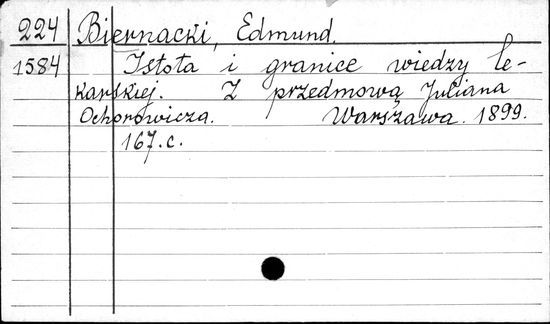 224 Biernacki, Edmund.
1584 Istota i granice wiedzy le-
karskiej. Z przedmową Juliana
Ochorowicza. Warszawa. 1899.
167.c.